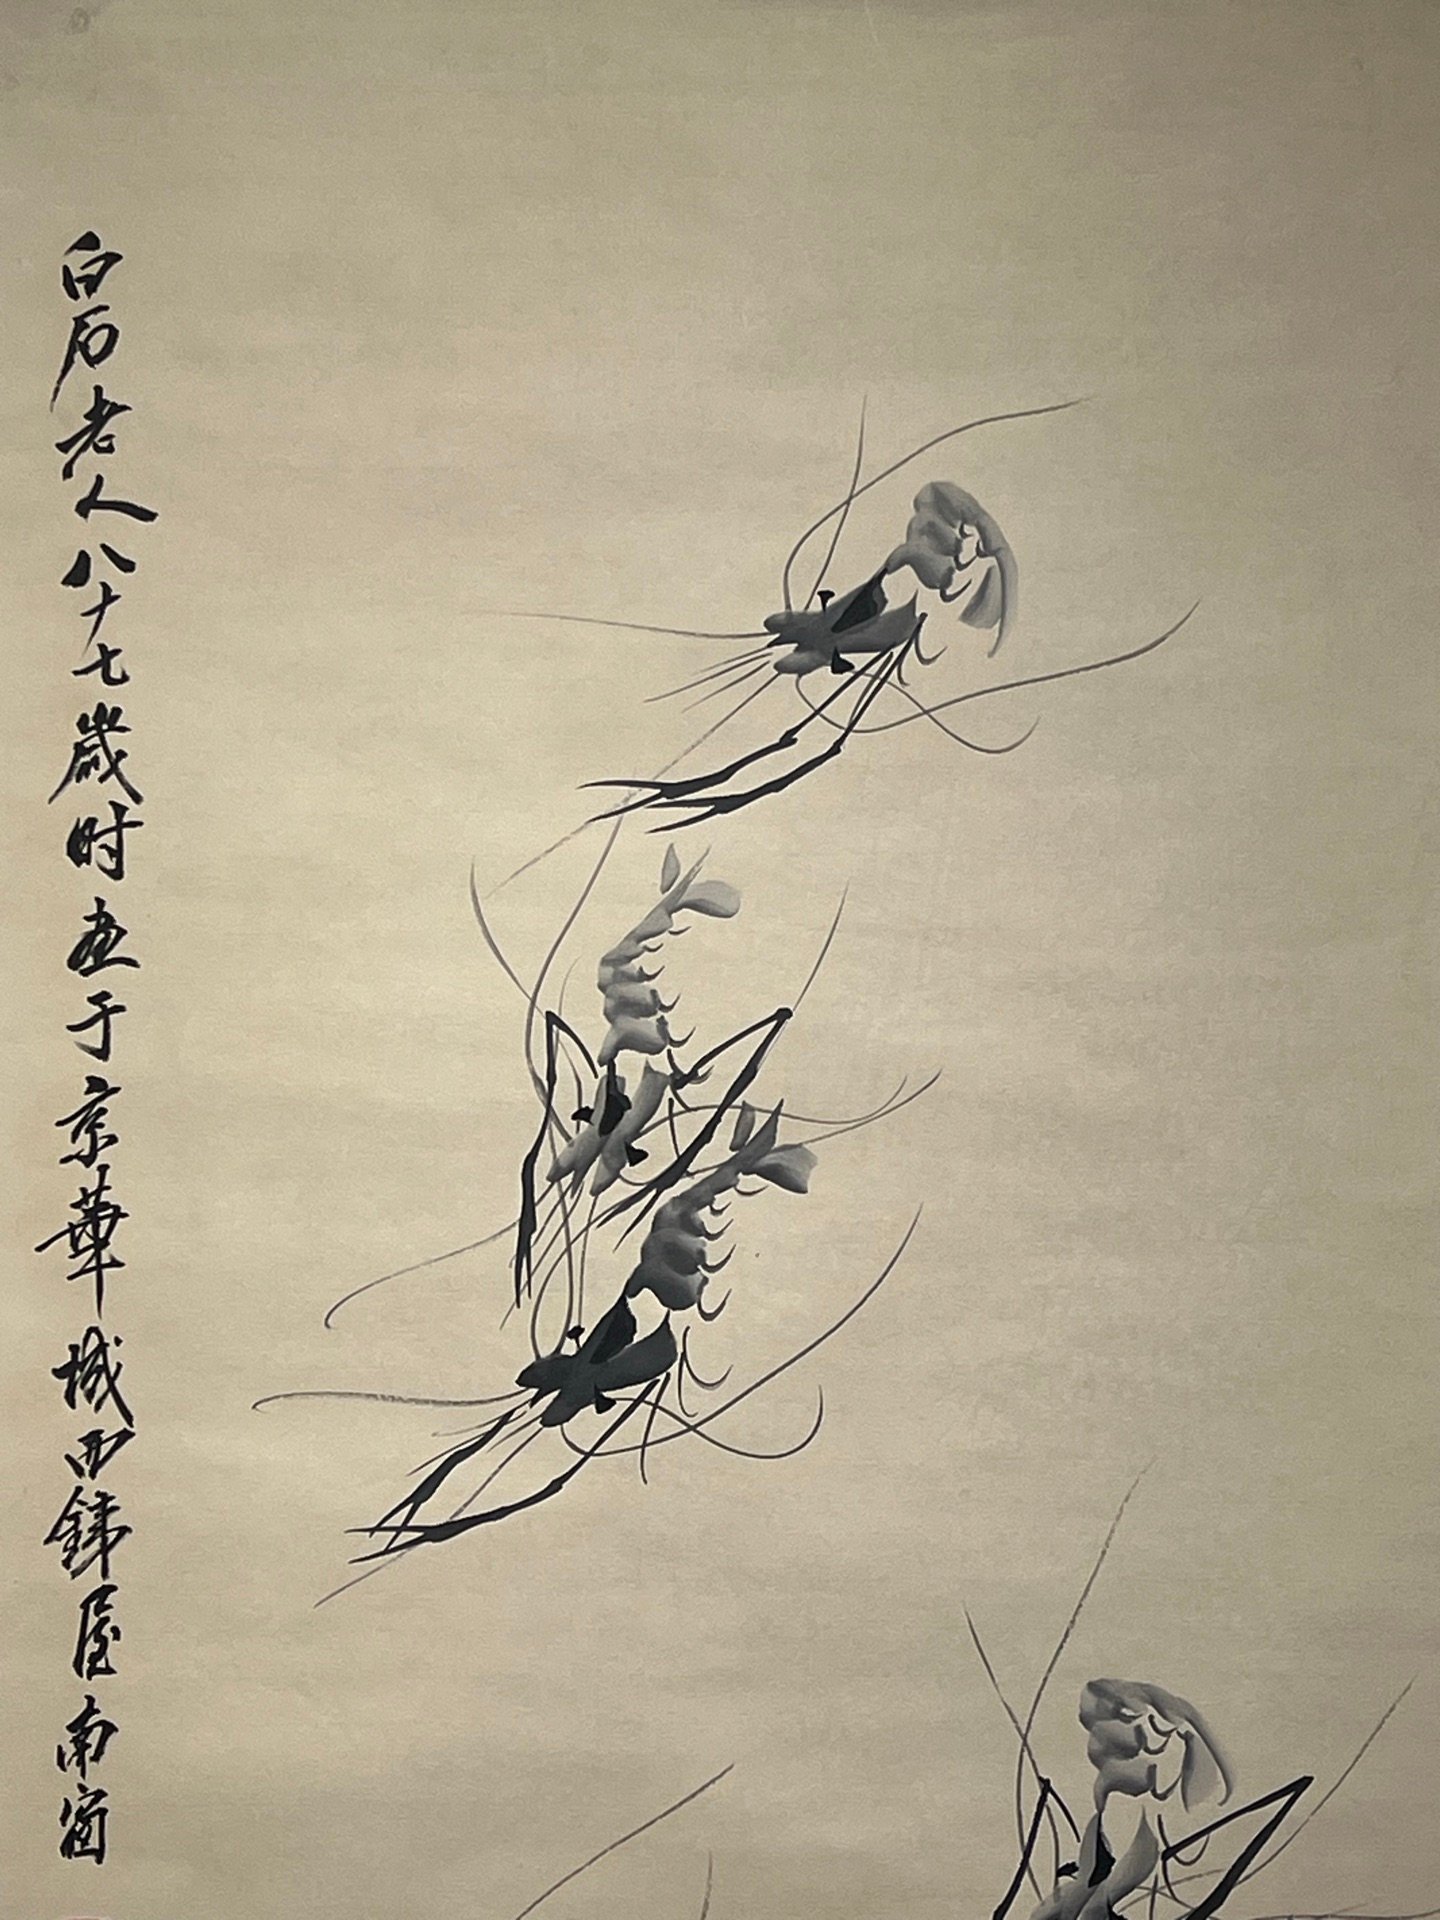 白石老人八十七歲时画于京華城西鐵屋南窗